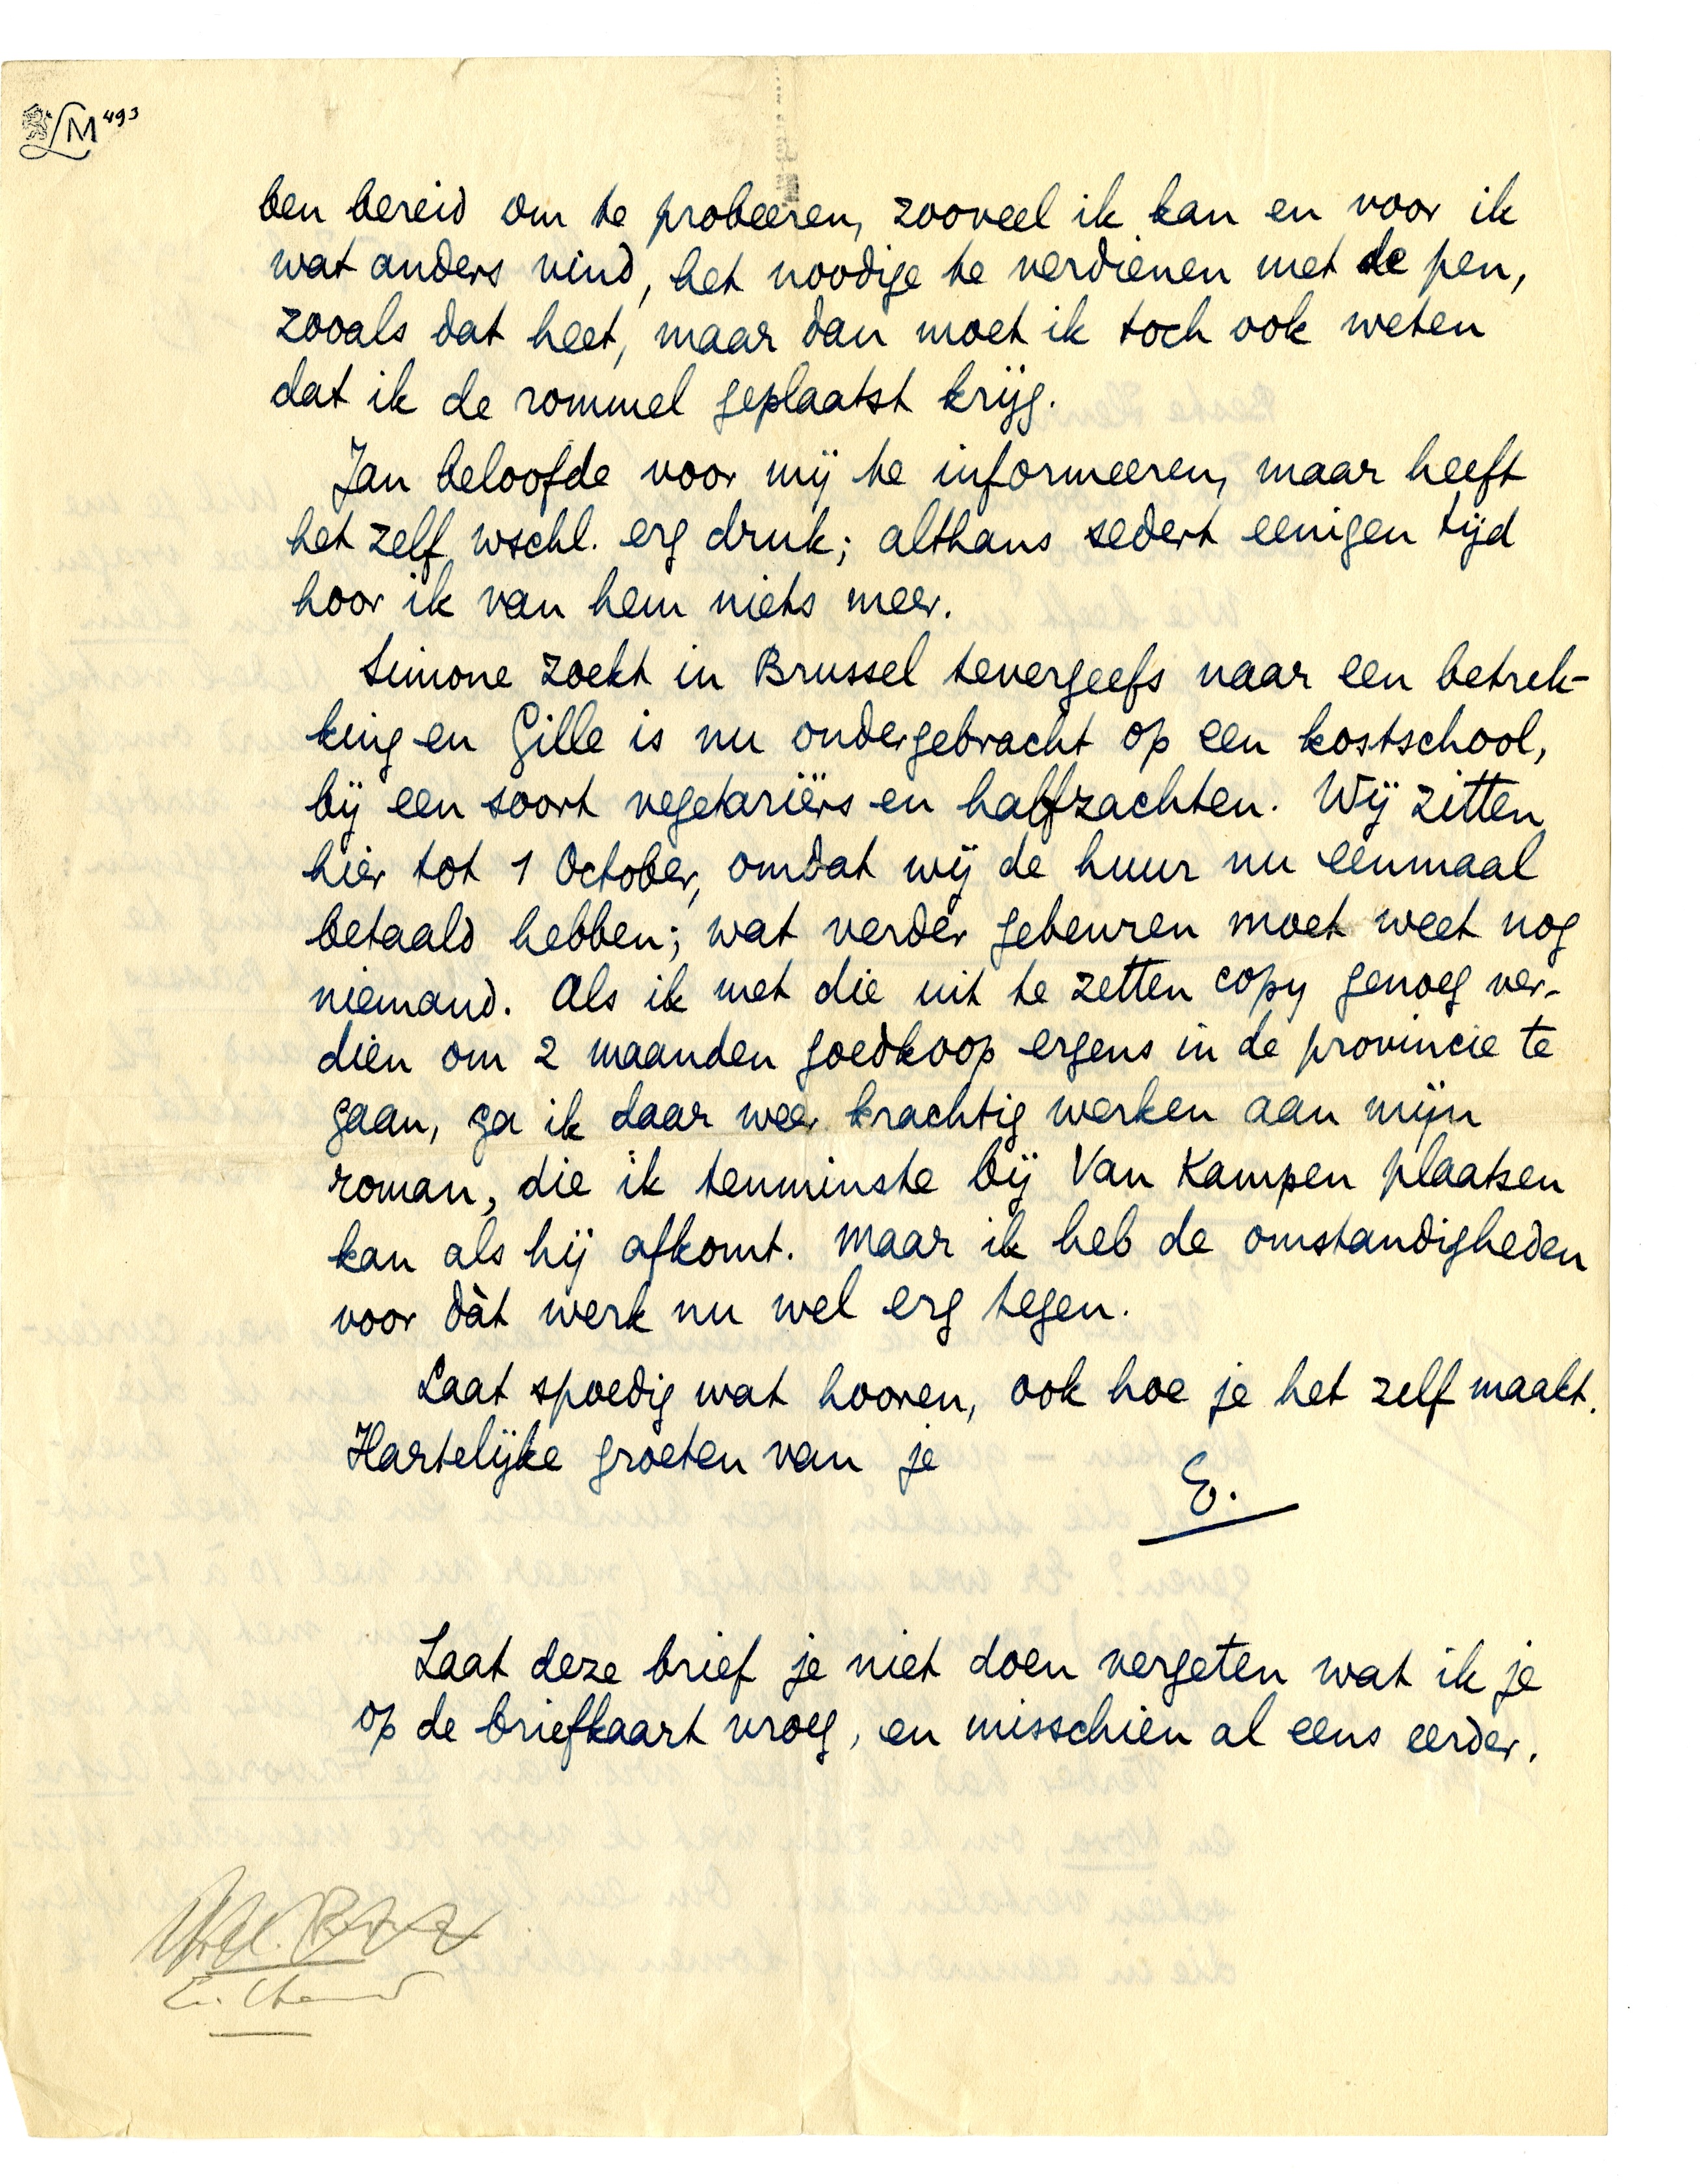 LM 493
ben bereid om te probeeren, zooveel ik kan en voor ik
wat anders vind, het noodige te verdienen met de pen,
zooals dat heet, maar dan moet ik toch ook weten
dat ik de rommel geplaatst krijg.
Jan beloofde voor mij te informeeren, maar heeft
het zelf wschl. erg druk; althans sedert eenigen tijd
hoor ik van hem niets meer.
Simone zoekt in Brussel tevergeefs naar een betrek-
king en Gille is nu ondergebracht op een kostschool,
bij een soort vegetariërs en halfzachten. Wij zitten
hier tot 1 October, omdat wij de huur nu eenmaal
betaald hebben; wat verder gebeuren moet weet nog
niemand. Als ik met die uit te zetten copy genoeg ver-
dien om 2 maanden goedkoop ergens in de provincie te
gaan, ga ik daar weer krachtig werken aan mijn
roman, die ik tenminste bij Van Kampen plaatsen
kan als hij afkomt. Maar ik heb de omstandigheden
voor dàt werk nu wel erg tegen.
Laat spoedig wat hooren, ook hoe je het zelf maakt.
Hartelijke groeten van je
E.
Laat deze brief je niet doen vergeten wat ik je
op de briefkaart vroeg, en misschien al eens eerder.